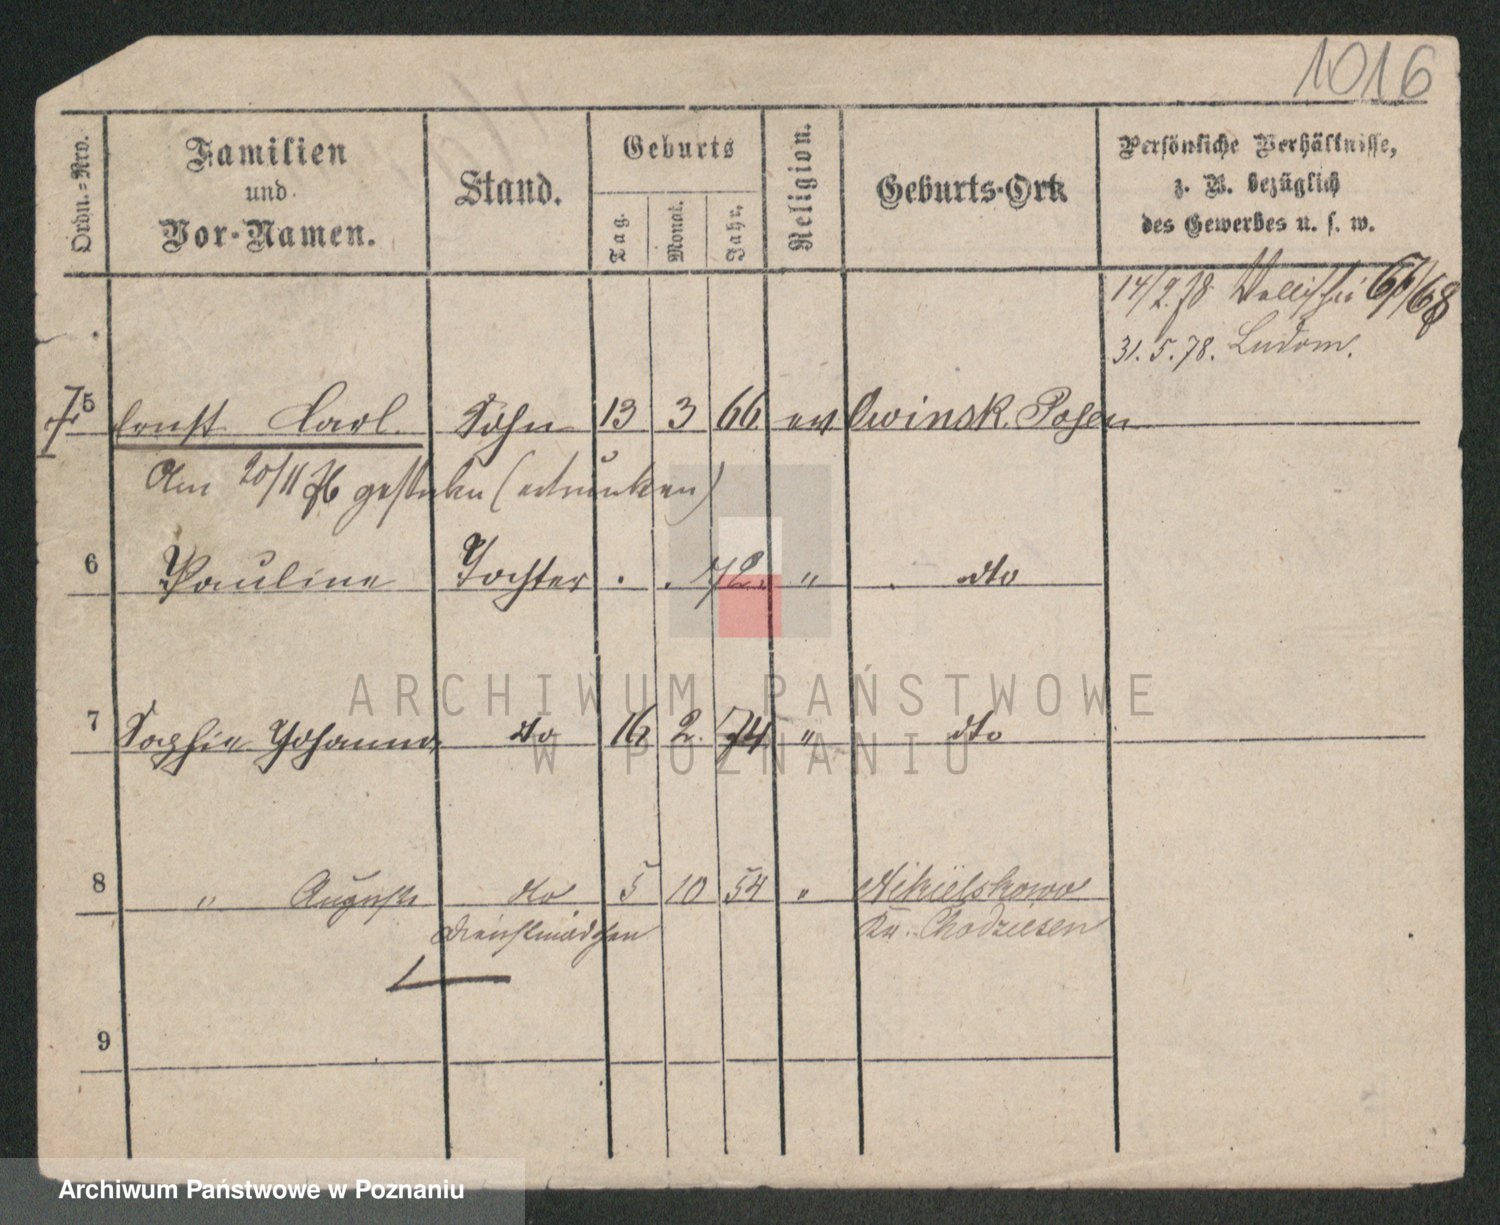 1016
Ordn.=Nro.
Familien
und
Vor-Namen.
Stand.
Geburts
Tag.
Monat.
Jahr.
Religion.
Geburts-Ort
Persönliche Verhältnisse,
z. B. bezüglich
des Gewerbes u. s. w.
14/2.78 Wallischei 67/68
31.5.78. Ludom.
5 Ernst Carl. Sohn 13 3 66 ev Owinsk. Posen
Am 20/11 76 gestorben (ertrunken)
6 Pauline Tochter . . 72. " dto
7 Sophie Johanna dto 16 2. 74 " dto
8 " Auguste dto 5 10 54 "
Dienstmädchen Kr. Chodziesen
9
ARCHIWUM PAŃSTWOWE
W POZNANIU
Archiwum Państwowe w Poznaniu